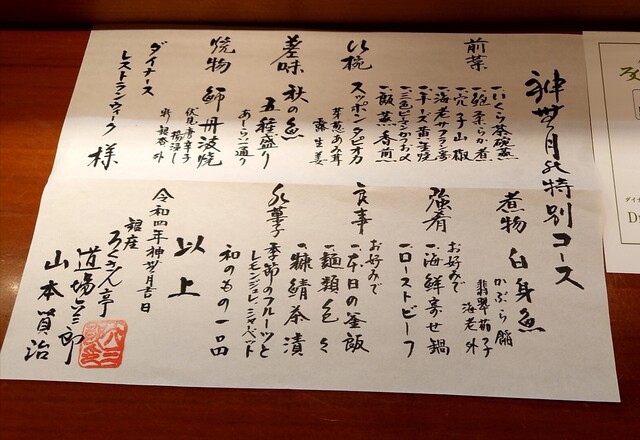 神無月の特別コース
前菜
一、いくら茶碗蒸し
一、鮑柔らか煮
一、穴子山椒
一、海老サフラン寿し
一、チーズ黄玉焼
一、三色ピーマンおひたし
一、飯蒸香煎
沁椀
スッポンタピオカ
芽葱あみ茸
露生姜
差味
秋の魚
五種盛り
あしらい一通り
焼物
鰤丹波焼
伏見唐辛子
揚浸し
ダイナース
レストランウィーク 様
煮物
白身魚
かぶら餡
翡翠茄子
海老外
強肴
お好みで
一、海鮮寄せ鍋
一、ローストビーフ
食事
お好みで
一、本日の釜飯
一、麺類色々
一、糠鯖茶漬
水菓子
季節のフルーツと
レモンジュレ、シャーベット
和のもの一品
以上
令和四年神無月吉日
銀座
ろくさん亭
道場六三郎
山本賢治